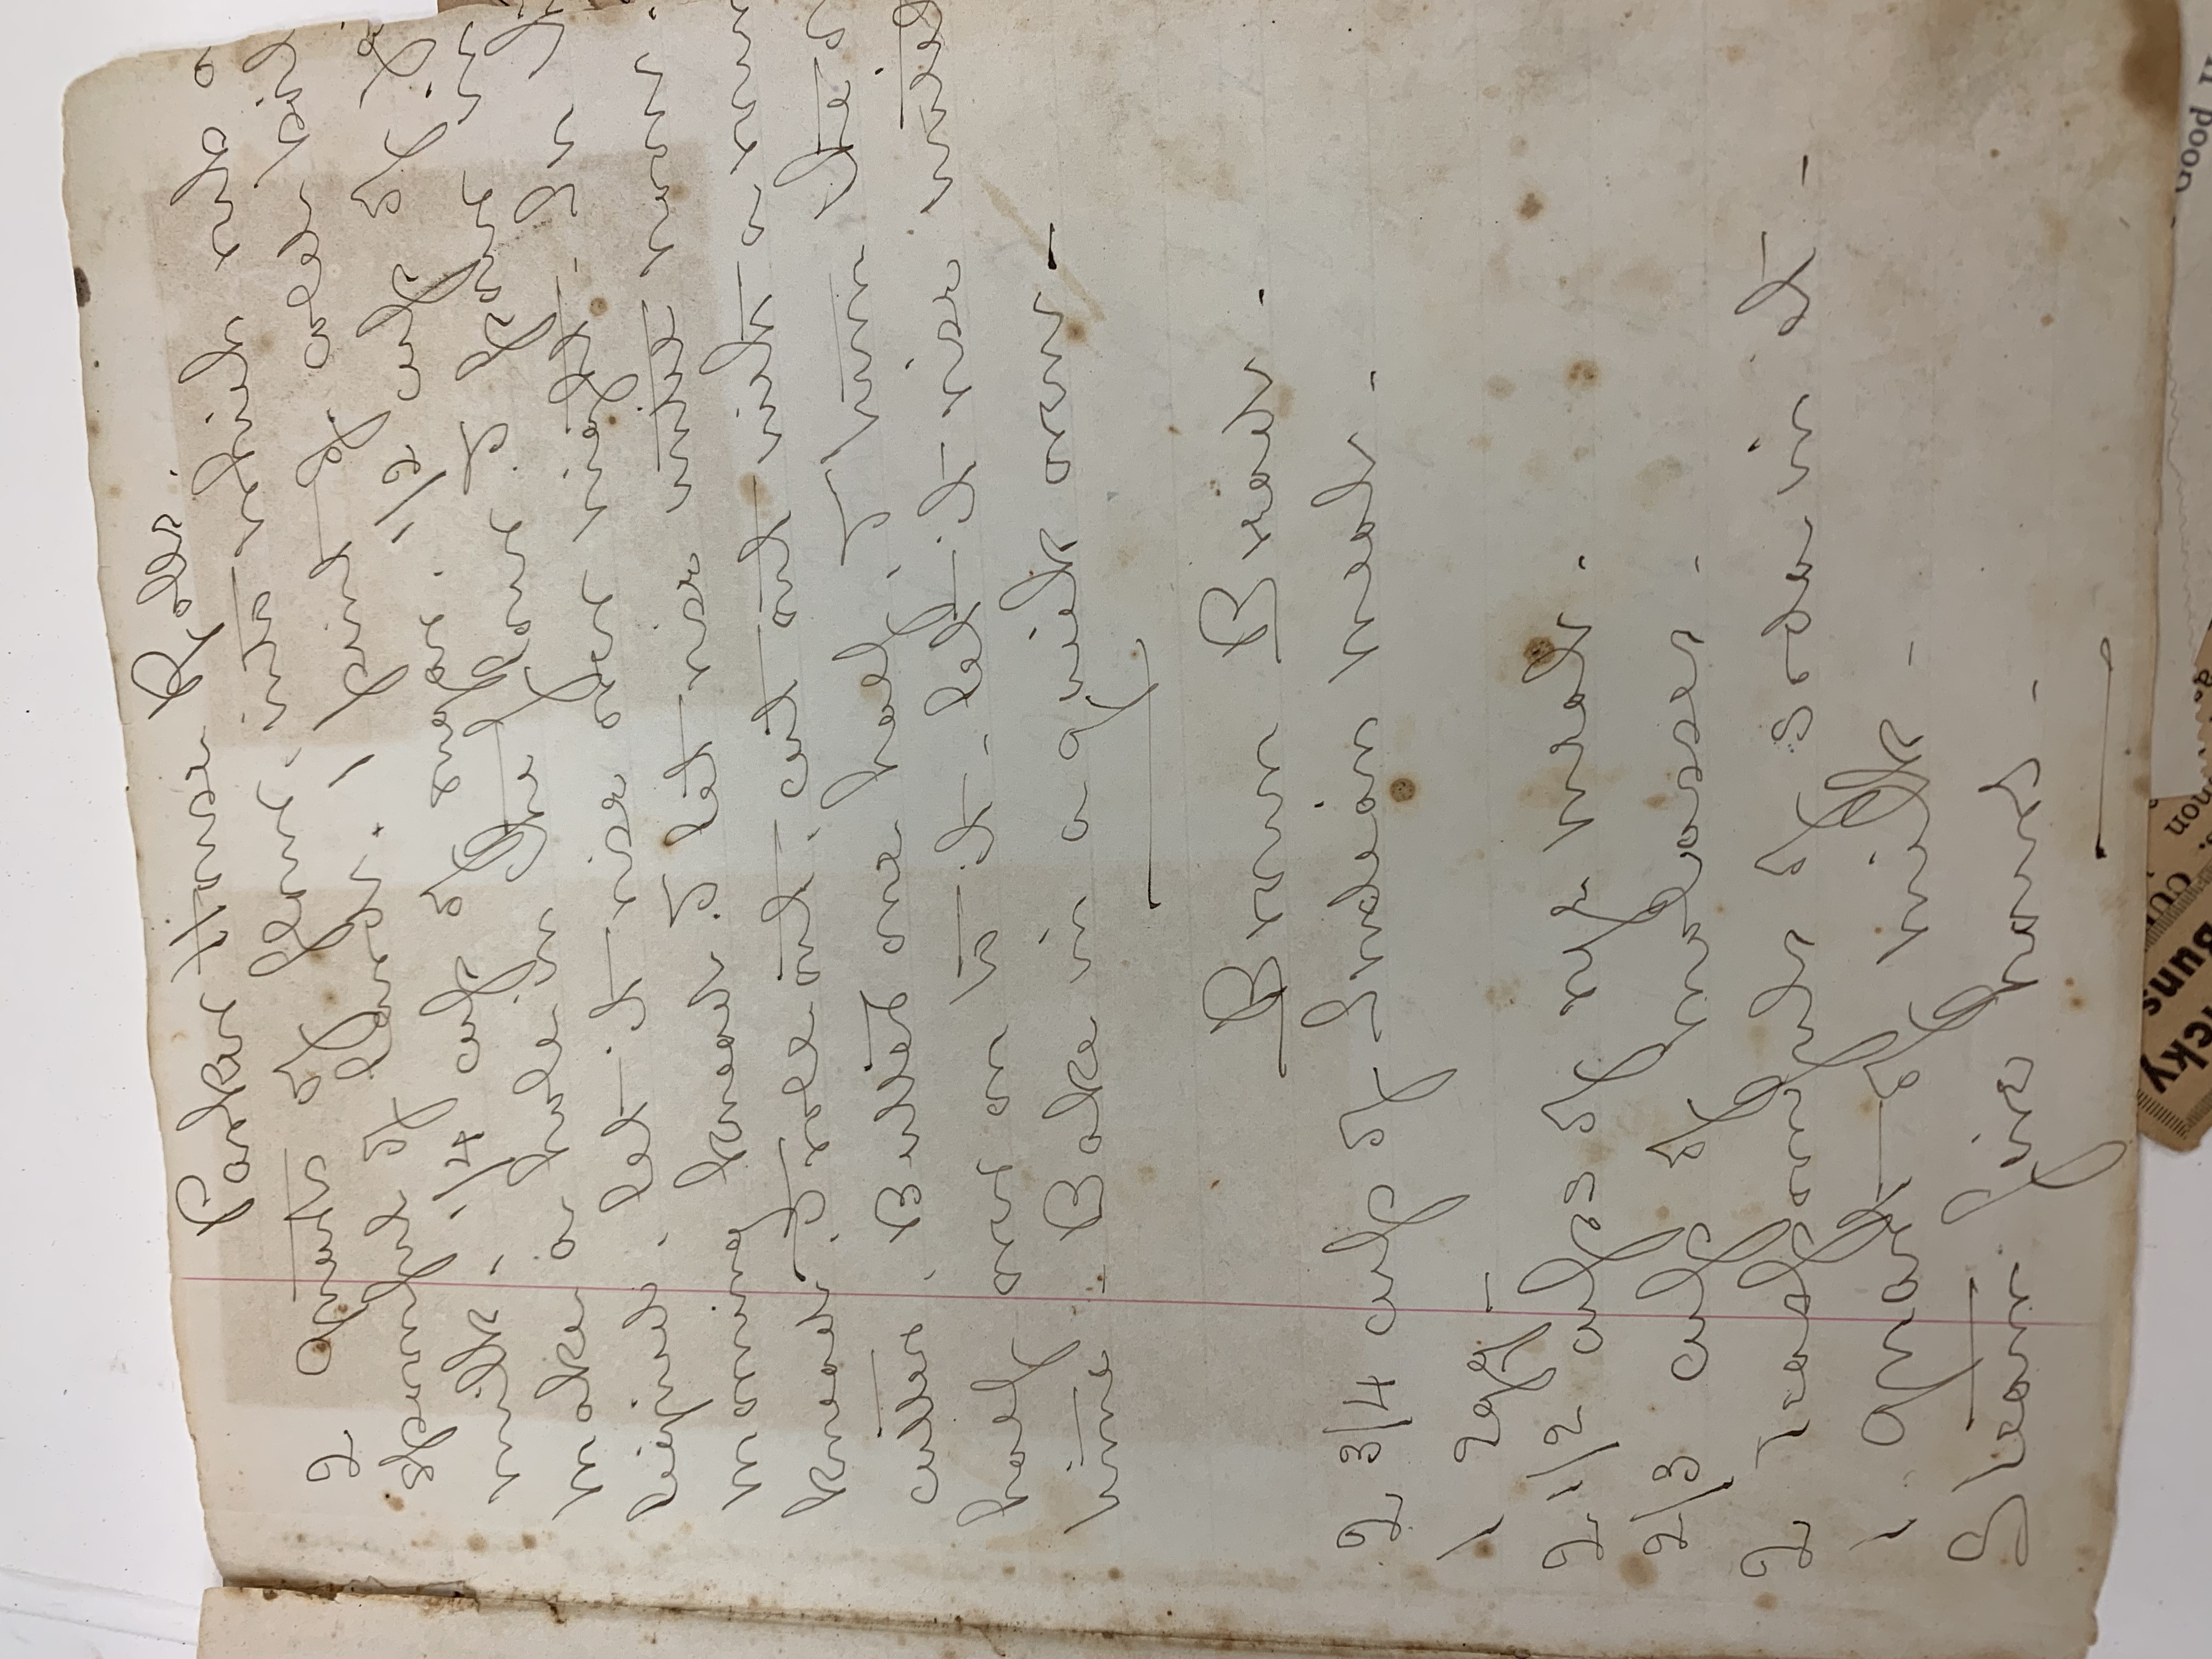 Parker House Rolls.
2 quarts of flour, into which rub a
spoonful of lard. 1 pint of cold boil
milk, 1/4 cup of sugar. 1/2 cup of
make a hole in the flour. & pour in
liquid, let it rise over night - In th
morning knead. & let rise until noon.
knead. & roll out, cut out with a roun
cutter, Butter one half, & turn the o
half over on to it - let it rise until
time - Bake in a quick oven -
Brown Bread -
2 3/4 cup of Indian meal -
1 Egg -
2 1/2 cups of rye meal -
2/3 cup of molasses -
2 Teaspoonfuls of soda in it -
1 quart of milk -
Steam five hours -
icky
Buns
Good